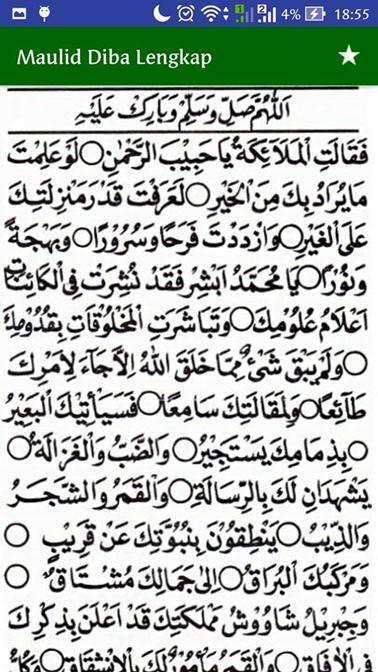 4% 18:55
Maulid Diba Lengkap
اَللّٰهُمَّ صَلِّ وَسَلِّمْ وَبَارِكْ عَلَيْهِ
فَقَالَتِ الْمَلَآئِكَةُ يَاحَبِيْبَ الرَّحْمٰنِ ○ لَوْعَلِمْتَ
مَايُرَادُ بِكَ مِنَ الْخَيْرِ ○ لَعَرَفْتَ قَدْرَ مَنْزِلَتِكَ
عَلَى الْغَيْرِ ○ وَازْدَدْتَ فَرَحًا وَسُرُوْرًا ○ وَبَهْجَةً
وَنُوْرًا ○ يَا مُحَمَّدُ اَبْشِرْ فَقَدْ نُشِرَتْ فِى الْكَائِنَاتِ
اَعْلَامُ عُلُوْمِكَ ○ وَتَبَاشَرَتِ الْمَخْلُوْقَاتُ بِقُدُوْمِكَ
○ وَلَمْ يَبْقَ شَىْءٌ مِمَّا خَلَقَ اللهُ اِلَّاجَآءَ لِاَمْرِكَ
طَآئِعًا ○ وَلِمَقَالَتِكَ سَامِعًا ○ فَسَيَأْتِيْكَ الْبَعِيْرُ
○ بِذِمَامِكَ يَسْتَجِيْرُ ○ وَالضَّبُّ وَالْغَزَالَةُ ○
يَشْهَدَانِ لَكَ بِالرِّسَالَةِ ○ وَالْقَمَرُ وَالشَّجَرُ
وَالذِّيْبُ ○ يَنْطِقُوْنَ بِنُبُوَّتِكَ عَنْ قَرِيْبٍ ○
وَمَرْكَبُكَ الْبُرَاقُ ○ اِلٰى جَمَالِكَ مُشْتَاقٌ ○
وَجِبْرِيْلُ شَاوُوْشُ مَمْلَكَتِكَ قَدْ اَعْلَنَ بِذِكْرِكَ
فِى الْاٰفَاقِ ○ وَالْقَمَرُ مَأْمُوْرٌ لَكَ بِالْاِنْشِقَاقِ ○ وَكُلُّ